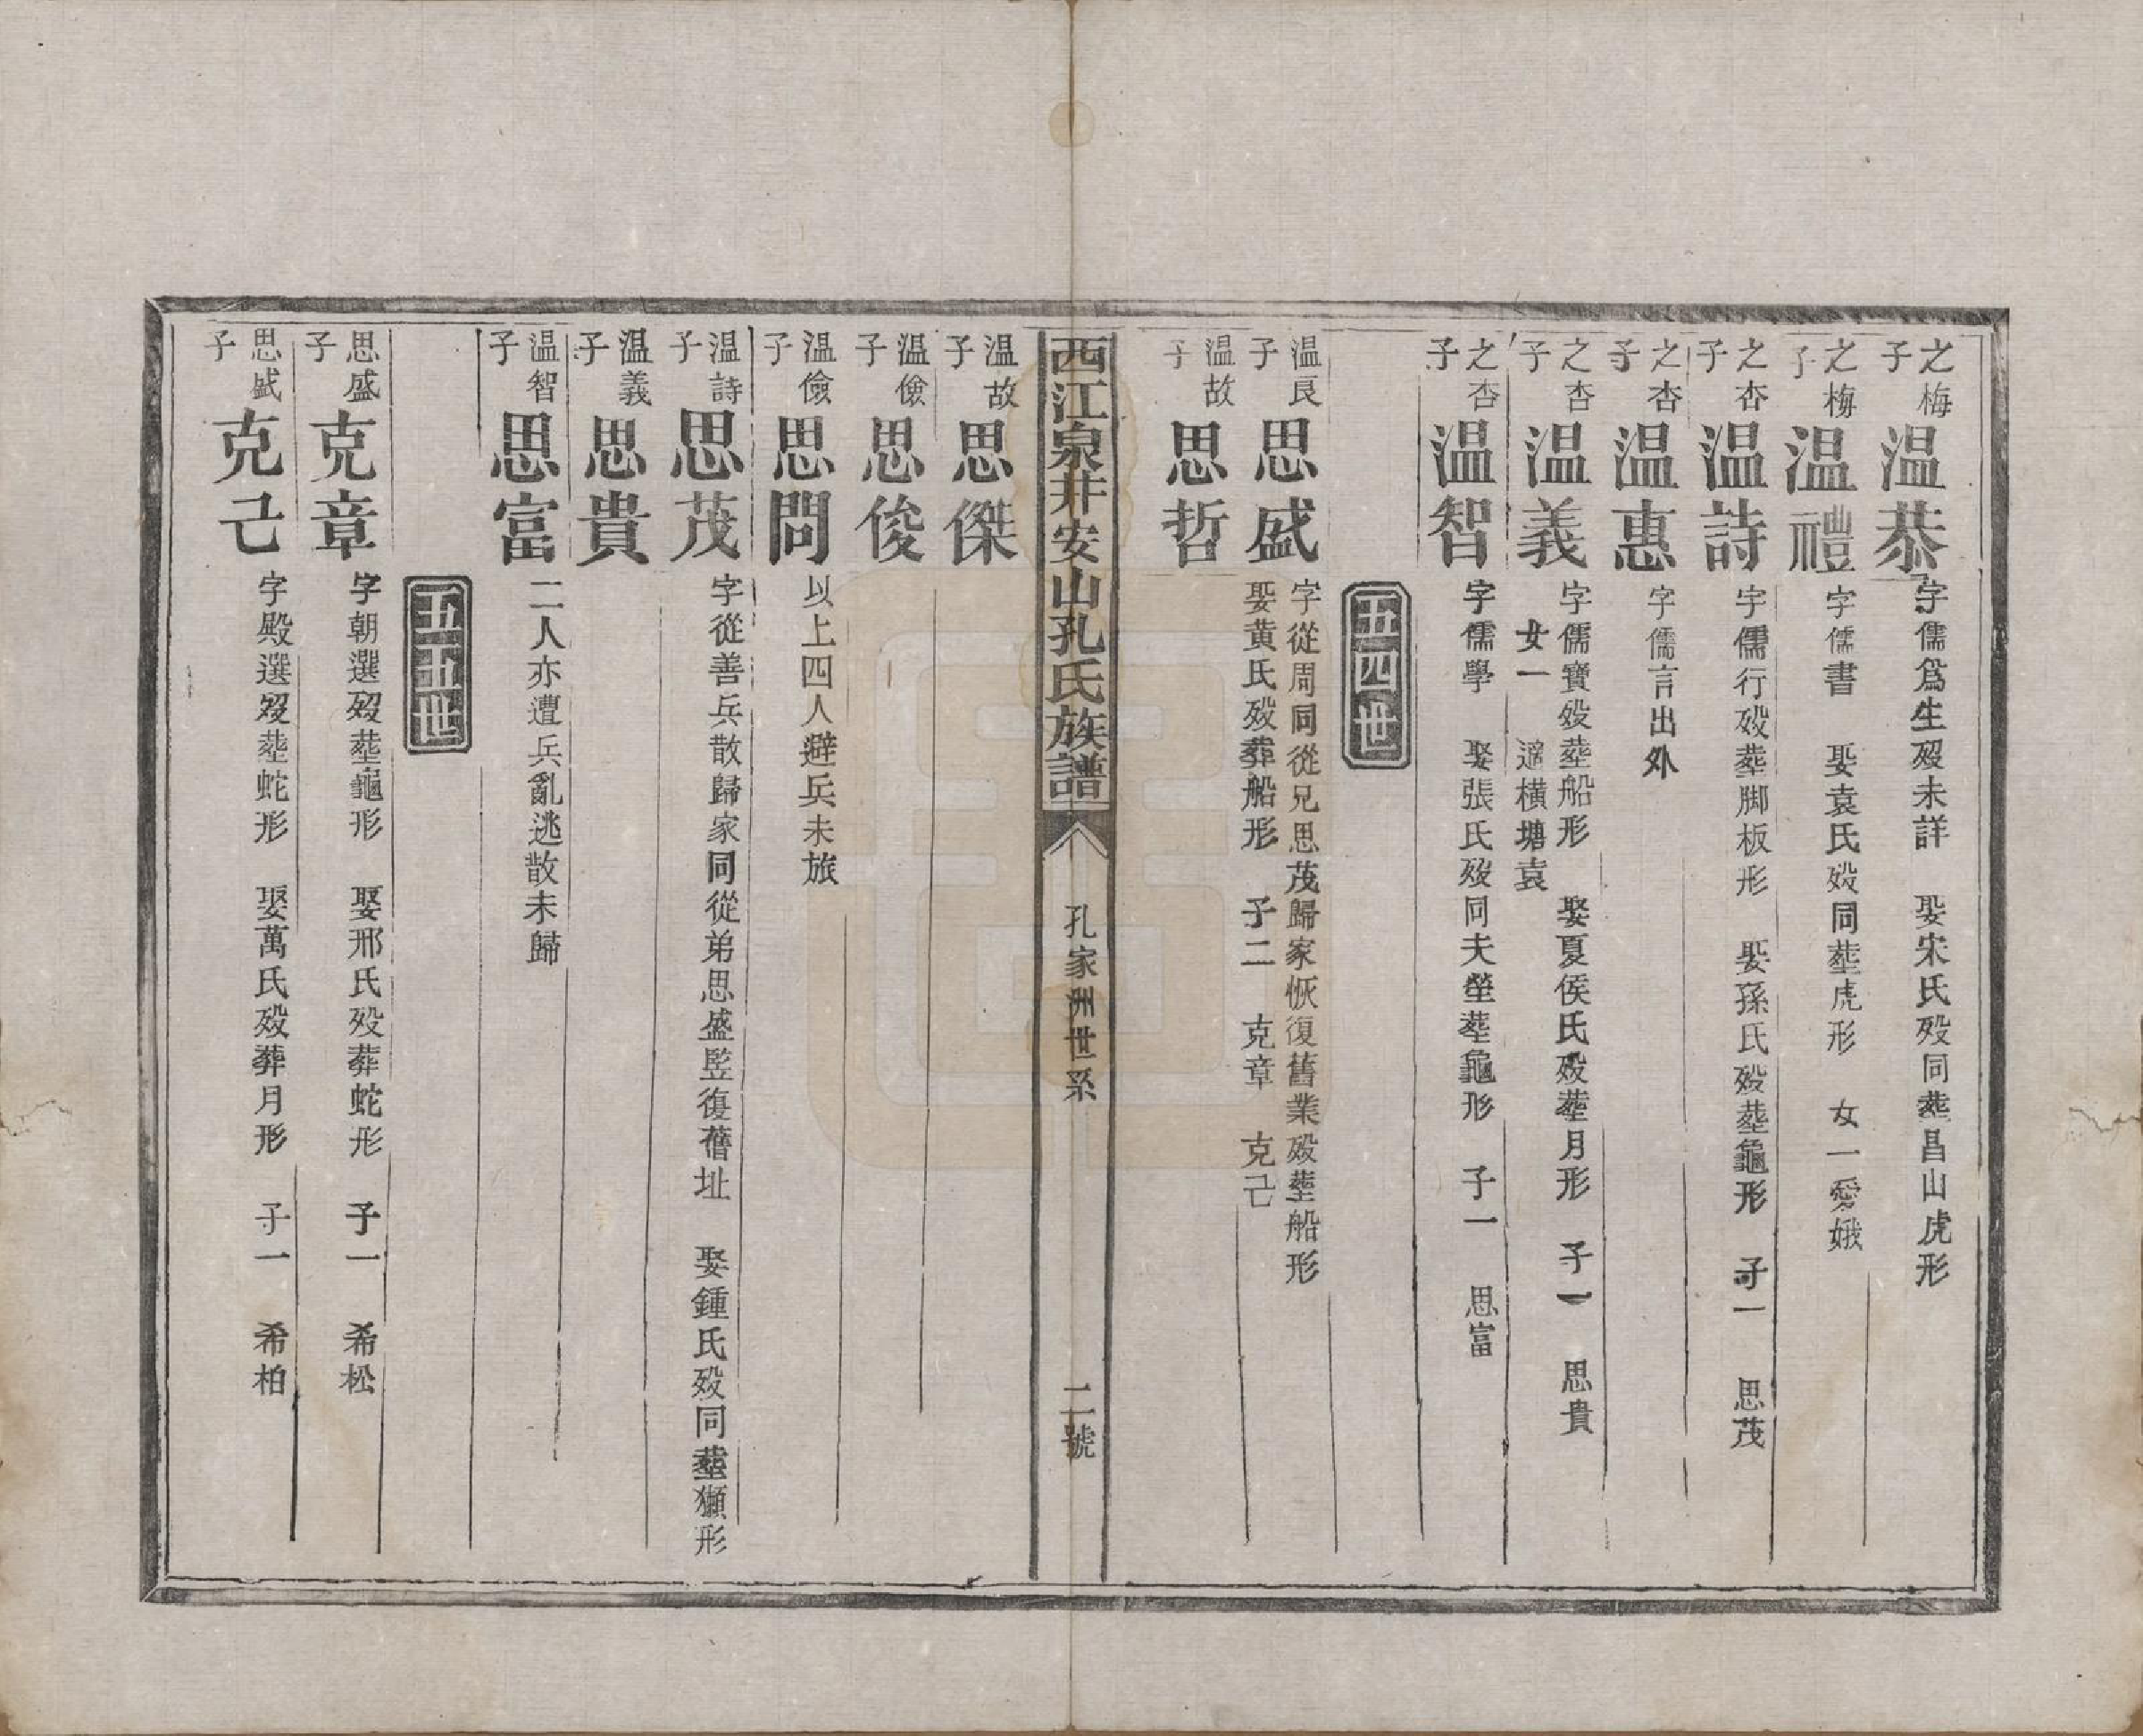 之梅子 温恭 字儒爲生歿未詳 娶宋氏歿同葬昌山虎形
之梅子 温禮 字儒書 娶袁氏歿同塟虎形 女一愛娥
之杏子 温詩 字儒行歿葬脚板形 娶孫氏歿塟龜形 子一 思茂
之杏子 温惠 字儒言出外
之杏子 温義 字儒寶歿塟船形 娶夏侯氏歿塟月形 子一 思貴
女一 適橫塘袁
之杏子 温智 字儒學 娶張氏歿同夫塋塟龜形 子一 思富
五四世
温良子 思盛 字從周同從兄思茂歸家恢復舊業歿塟船形
娶黄氏歿葬船形 子二 克章 克己
温故子 思哲
西江泉井安山孔氏族譜 孔家洲世系 二號
温故子 思傑
温儉子 思俊
温儉子 思問 以上四人避兵未旅
温詩子 思茂 字從善兵散歸家同從弟思盛監復舊址 娶鍾氏歿同塟獺形
温義子 思貴
温智子 思富 二人亦遭兵亂逃散未歸
五五世
思盛子 克章 字朝選歿塟龜形 娶邢氏歿葬蛇形 子一 希松
思盛子 克己 字殿選歿塟蛇形 娶萬氏歿葬月形 子一 希柏